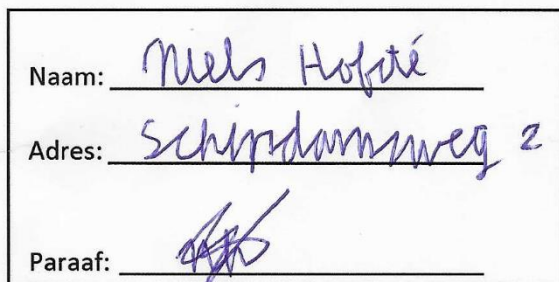 Naam: Niels Hofsté
Adres: Schipdamsweg 2
Paraaf: